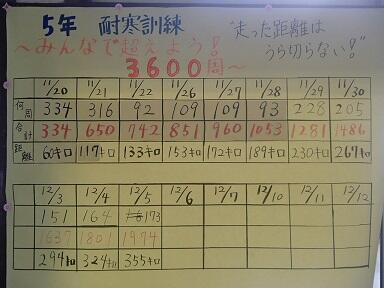 5年 耐寒訓練
"走った距離は
うら切らない!"
～みんなで超えよう!
3600周～
11/20 11/21 11/22 11/26 11/27 11/28 11/29 11/30
何周 334 316 92 109 109 93 228 205
合計 334 650 742 851 960 1053 1281 1486
距離 60キロ 117キロ 133キロ 153キロ 172キロ 189キロ 230キロ 267キロ
12/3 12/4 12/5 12/6 12/7 12/10 12/11 12/12
151 164 173
1637 1801 1974
294キロ 324キロ 355キロ